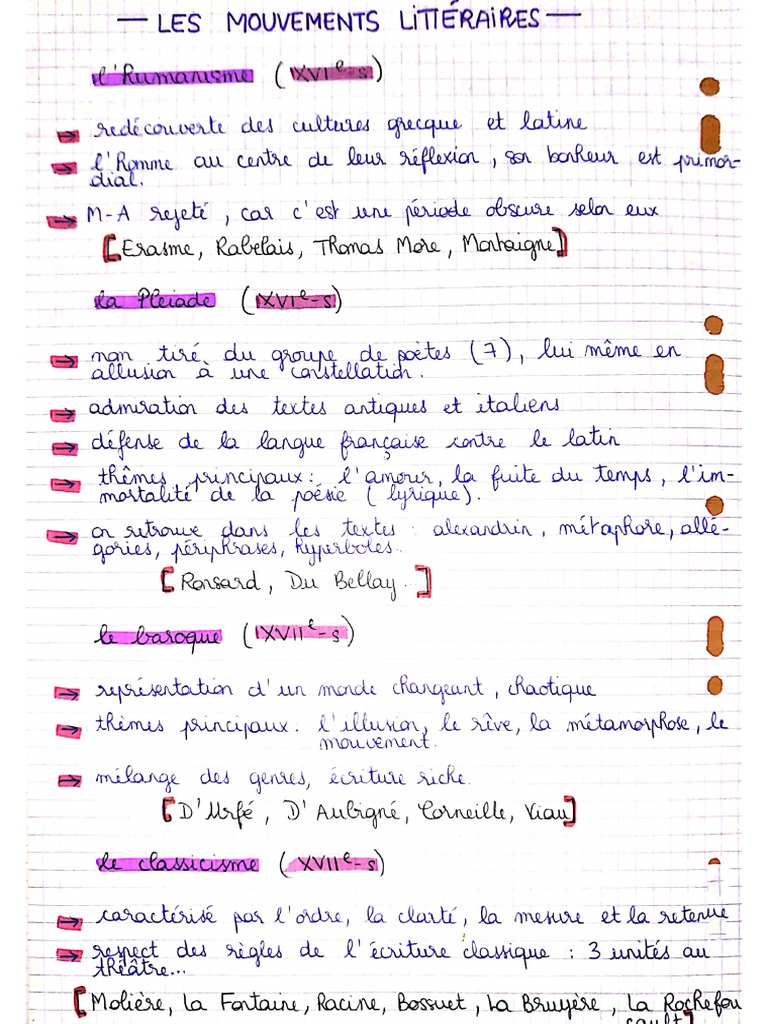 — LES MOUVEMENTS LITTÉRAIRES —
l'Humanisme (XVIe-s)
→ redécouverte des cultures grecque et latine
→ l'Homme au centre de leur réflexion, son bonheur est primor-
dial.
→ M-A rejeté, car c'est une période obscure selon eux
[Erasme, Rabelais, Thomas More, Montaigne]
la Pléiade (XVIe-s)
→ nom tiré du groupe de poètes (7), lui même en
allusion à une constellation.
→ admiration des textes antiques et italiens
→ défense de la langue française contre le latin
→ thêmes principaux: l'amour, la fuite du temps, l'im-
mortalité de la poésie (lyrique).
→ on retrouve dans les textes: alexandrin, métaphore, allé-
gories, périphrases, hyperboles..
[Ronsard, Du Bellay.]
le baroque (XVIIe-s)
→ représentation d'un monde changeant, chaotique
→ thèmes principaux: l'illusion, le rêve, la métamorphose, le
mouvement.
→ mélange des genres, écriture riche.
[D'Urfé, D'Aubigné, Corneille, Viau]
le classicisme (XVIIe-s)
→ caractérisé par l'ordre, la clarté, la mesure et la retenue
→ respect des règles de l'écriture classique : 3 unités au
théâtre...
[Molière, La Fontaine, Racine, Bossuet, La Bruyère, La Rochefou
cault]